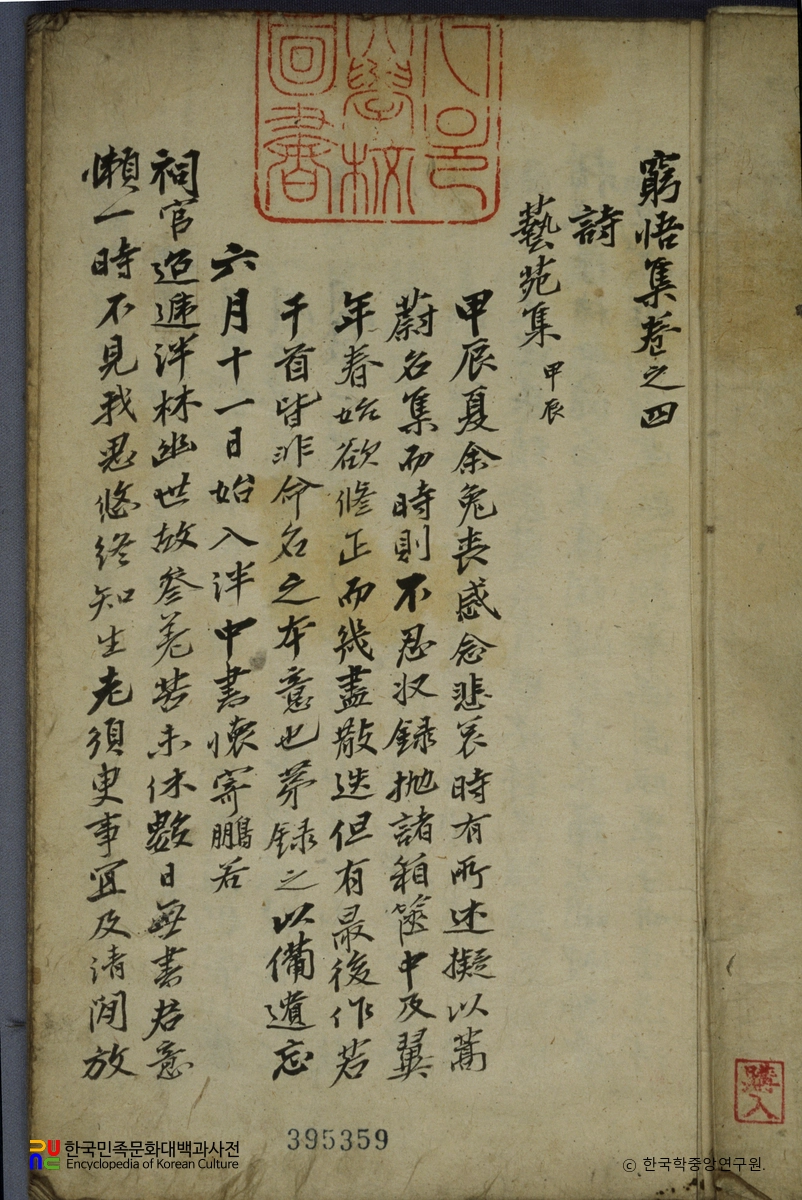 窮悟集卷之四
詩
藝苑集 甲辰
甲辰夏余免喪感念悲哀時有所述擬以蒿
蔚名集而時則不忍收錄抛諸箱篋中及翼
年春始欲修正而幾盡散迭但有最後作若
干首皆非命名之本意也茅録之以備遺忘
六月十一日始入泮中書懷寄鵬若
祠官迢遞泮林幽世故參差苦未休數日無書君意
懶一時不見我思悠終知生老須臾事宜及清閒放
圖書
學校
購入
395359
한국민족문화대백과사전
Encyclopedia of Korean Culture
ⓒ 한국학중앙연구원.